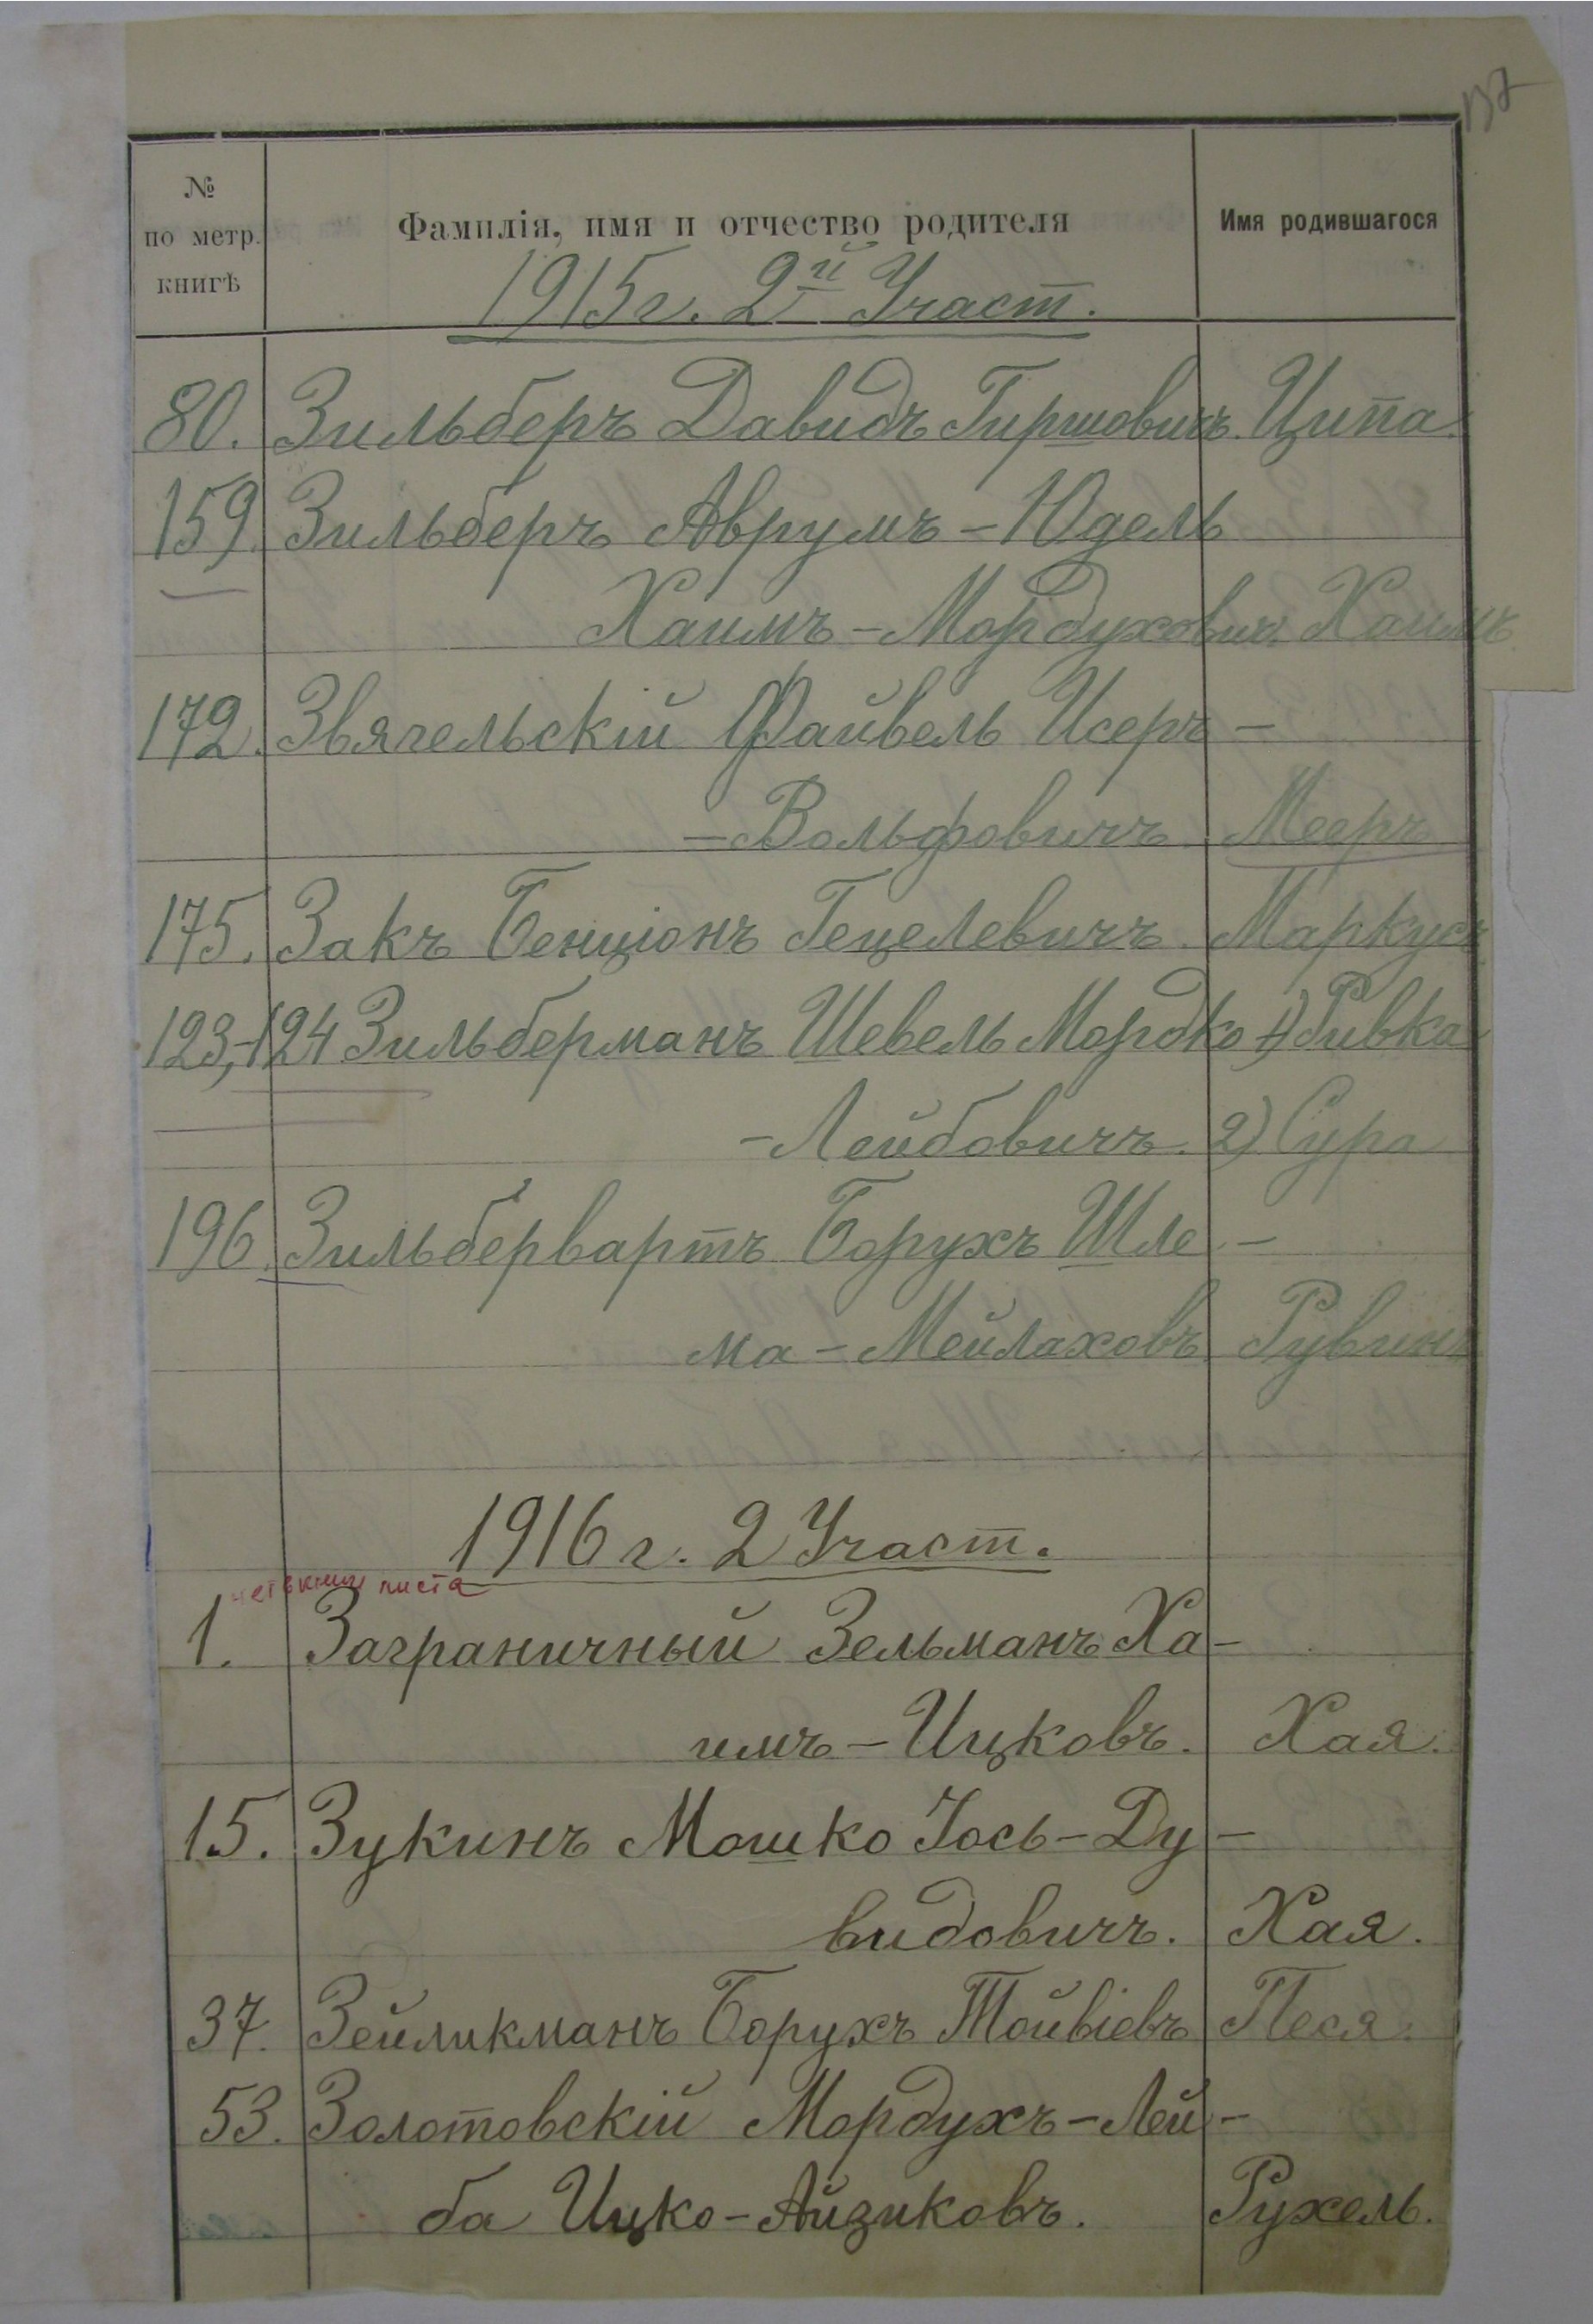 137
№
по метр.
книгѣ
Фамилія, имя и отчество родителя
Имя родившагося
1915 г. 2й Участ.
80. Зильберъ Давидъ Гиршовичъ. Ципа.
159. Зильберъ Аврумъ-Юдель
Хаимъ-Мордуховичъ. Хаимъ.
172. Звягельскій Файвель Исеръ-
-Вольфовичъ. Мееръ
175. Закъ Бенціонъ Гецелевичъ. Маркусъ
123,-124 Зильберманъ Шевель Мордко 1) Ривка
-Лейбовичъ. 2) Сура
196. Зильбервартъ Борухъ Шле-
ма-Мейлаховъ. Рувинъ
1916 г. 2 Участ.
листа
1. Заграничный Зельманъ Ха-
имъ-Ицковъ. Хая.
15. Зукинъ Мошко Іось-Ду-
видовичъ. Хая.
37. Зейликманъ Борухъ Тойвіевъ Песя.
53. Золотовскій Мордухъ-Лей-
ба Ицко-Айзиковъ. Рухель.